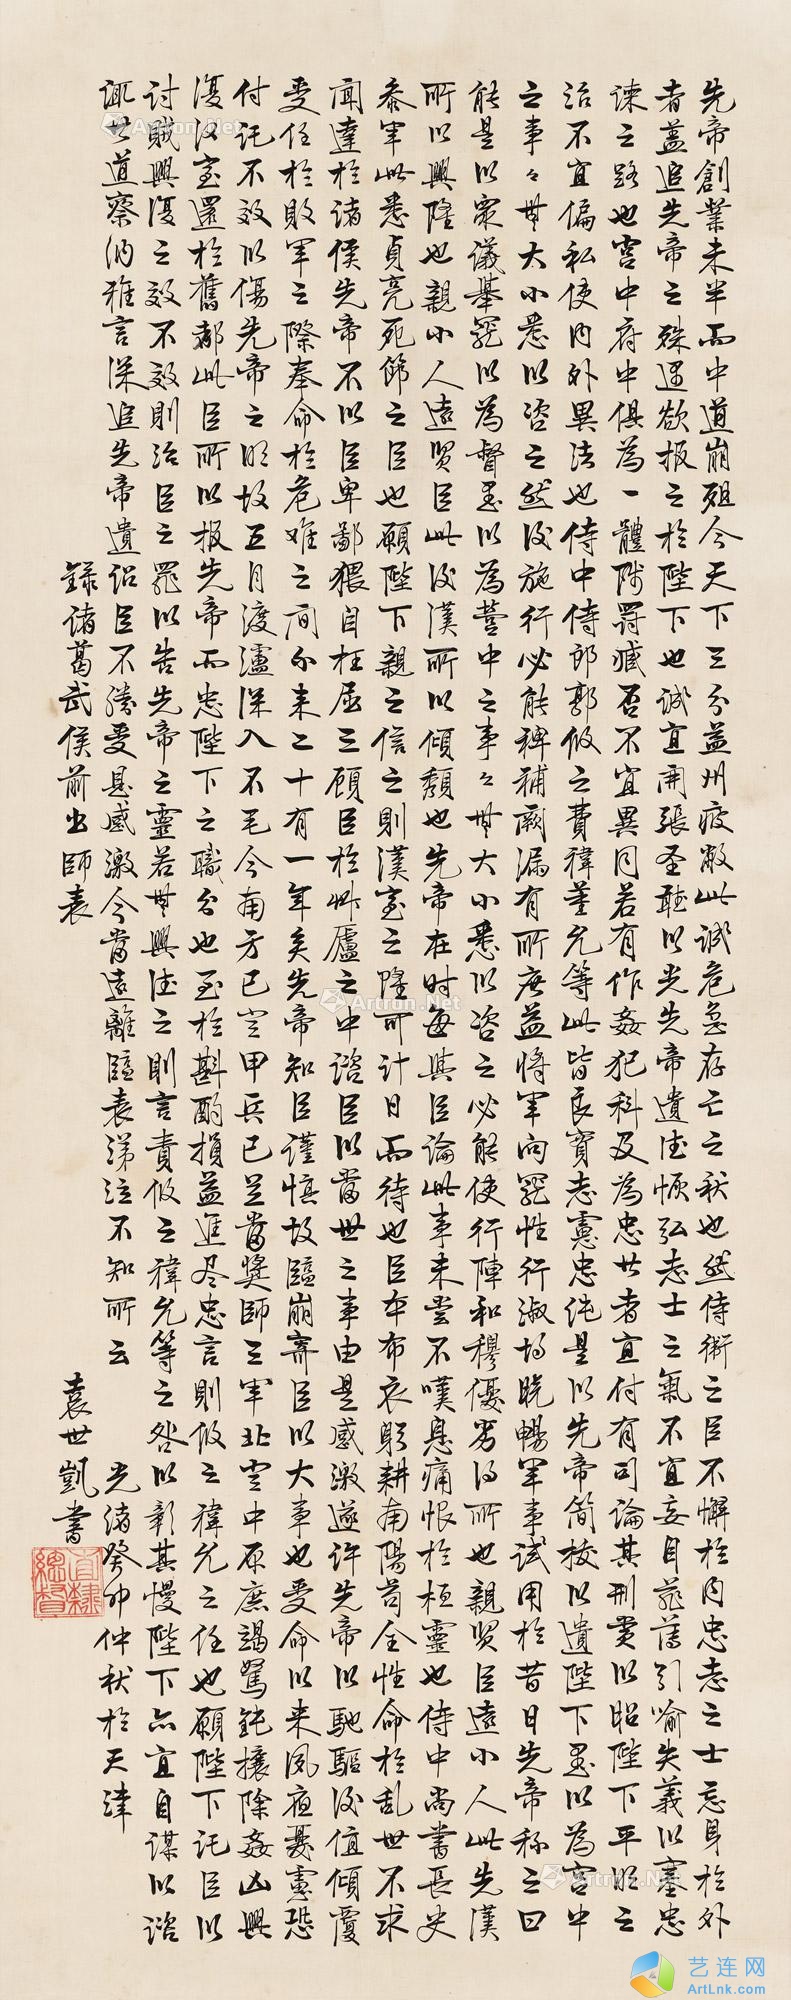 先帝創業未半而中道崩殂今天下三分益州疲敝此誠危急存亡之秋也然侍衛之臣不懈於內忠志之士忘身於外
者蓋追先帝之殊遇欲報之於陛下也誠宜開張圣聽以光先帝遺德恢弘志士之氣不宜妄自菲薄引喻失義以塞忠
諫之路也宮中府中俱為一體陟罰臧否不宜異同若有作姦犯科及為忠善者宜付有司論其刑賞以昭陛下平明之
治不宜偏私使內外異法也侍中侍郎郭攸之費禕董允等此皆良實志慮忠純是以先帝簡拔以遺陛下愚以為宮中
之事々無大小悉以咨之然後施行必能裨補闕漏有所廣益將軍向寵性行淑均曉暢軍事試用於昔日先帝稱之曰
能是以眾議舉寵以為督愚以為營中之事々無大小悉以咨之必能使行陣和穆優劣得所也親賢臣遠小人此先漢
所以興隆也親小人遠賢臣此後漢所以傾頹也先帝在时每與臣論此事未嘗不嘆息痛恨於桓靈也侍中尚書長史
參軍此悉貞亮死節之臣也願陛下親之信之則漢室之隆可計日而待也臣本布衣躬耕南陽苟全性命於乱世不求
聞達於諸侯先帝不以臣卑鄙猥自枉屈三顧臣於草廬之中諮臣以當世之事由是感激遂許先帝以馳驅後值傾覆
受任於敗軍之際奉命於危難之間尒来二十有一年矣先帝知臣謹慎故臨崩寄臣以大事也受命以来夙夜憂慮恐
付託不效以傷先帝之明故五月渡瀘深入不毛今南方已定甲兵已足當獎師三軍北定中原庶竭駑鈍攘除姦凶興
復漢室還於舊都此臣所以報先帝而忠陛下之職分也至於斟酌損益進尽忠言則攸之禕允之任也願陛下託臣以
討賊興復之效不效則治臣之罪以告先帝之靈若無興德之則言責攸之禕允等之咎以彰其慢陛下亦宜自謀以諮
諏善道察納雅言深追先帝遺詔臣不勝受恩感激今當遠離臨表涕泣不知所云 光緒癸卯仲秋於天津
錄諸葛武侯前出師表 袁世凱書
直隸總督
Artron.Net
艺连网
ArtLnk.com